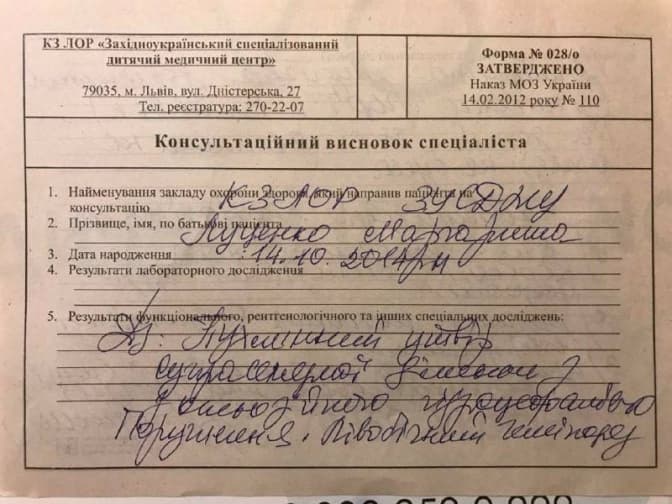 КЗ ЛОР «Західноукраїнський спеціалізований
дитячий медичний центр»
79035, м. Львів, вул. Дністерська, 27
Тел. реєстратура: 270-22-07
Форма № 028/о
ЗАТВЕРДЖЕНО
Наказ МОЗ України
14.02.2012 року № 110
Консультаційний висновок спеціаліста
1. Найменування закладу охорони здоров'я, який направив пацієнта на
консультацію КЗ ЛОР ЗУСДМЦ
2. Прізвище, імя, по батькові пацієнта Луценко Маргарита
3. Дата народження 14.10.2014 р.н
4. Результати лабораторного дослідження
5. Результати функціонального, рентгенологічного та інших спеціальних досліджень:
Дз: Пухлинний утвір
супраселярної ділянки з
оклюзійною гідроцефалією
Порушення. Лівобічний геміпарез